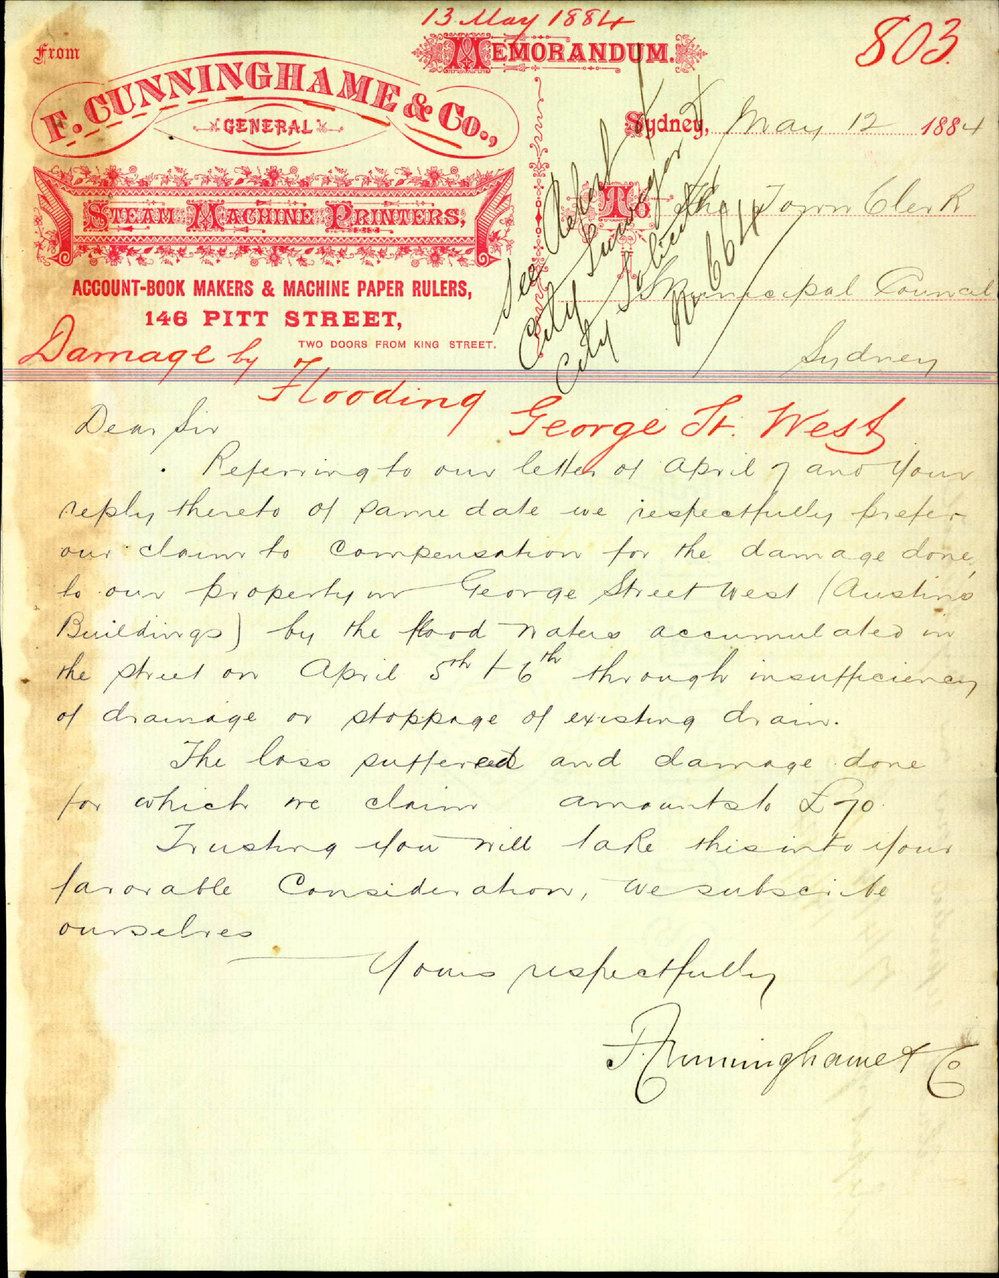 13 May 1884
803.
From
MEMORANDUM.
F. CUNNINGHAME & Co.,
GENERAL
STEAM MACHINE PRINTERS,
ACCOUNT-BOOK MAKERS & MACHINE PAPER RULERS,
146 PITT STREET,
TWO DOORS FROM KING STREET.
Sydney, May 12 1884
To The Town Clerk
Municipal Council
Sydney
See Report
City Surveyor &
City Solicitor
No 664
Damage by
Flooding George St. West
Dear Sir
Referring to our letter of April 7 and your
reply thereto of same date we respectfully prefer
our claim to compensation for the damage done
to our property in George Street West (Austin's
Buildings) by the flood waters accumulated in
the street on April 5th & 6th through insufficiency
of drainage or stoppage of existing drain.
The loss suffered and damage done
for which we claim amounts to £70.
Trusting you will take this into your
favorable consideration, we subscribe
ourselves
Yours respectfully
F. Cunninghame & Co